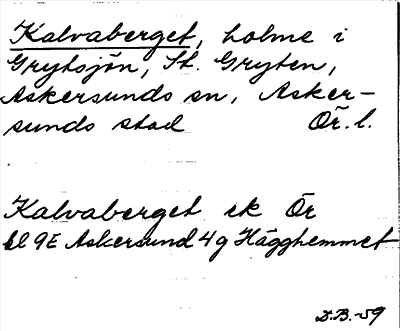 Kalvaberget, holme i
Grytsjön, St. Gryten,
Askersunds sn, Asker-
sunds stad Ör. l.
Kalvaberget ek Ör
bl 9E Askersund 4 g Hägghemmet
D.B.-59